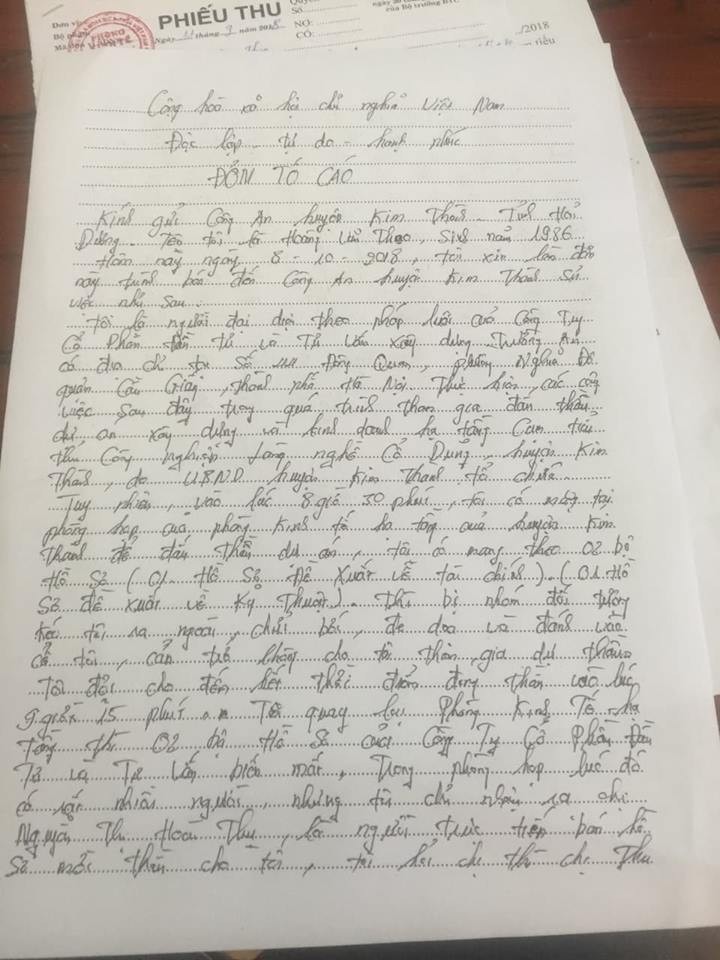 Đơn vị
Bộ phận
PHIẾU THU
Số
của Bộ trưởng BTC
Ngày 11 tháng 9 năm 2018
NỢ:
CÓ:
/2018
triều
Cộng hòa xã hội chủ nghĩa Việt Nam
Độc lập - tự do - hạnh phúc
ĐƠN TỐ CÁO
Kính gửi Công An huyện Kim Thành - Tỉnh Hải
Dương. Tên tôi là Hoàng Thạo, Sinh năm 1986
Hôm nay ngày 8 - 10 - 2018, tôi xin làm đơn
này trình báo đến Công An huyện Kim Thành Sự
việc như sau:
tôi là người đại diện theo pháp luật của Công Ty
Cổ Phần Đầu tư và Tư Vấn xây dựng Trường An
có địa chỉ tại Số Đông Quan, phường Nghĩa Đô
quận Cầu Giấy, thành phố Hà Nội. Thực hiện các công
việc sau đây trong quá trình tham gia đấu thầu
dự án xây dựng và kinh doanh hạ tầng Cụm tiểu
thủ Công nghiệp Làng nghề Cổ Dũng, huyện Kim
Thành, do U.B.N.D huyện Kim Thành tổ chức.
Tuy nhiên, vào lúc 8 giờ 30 phút, tôi có mặt tại
phòng họp của phòng Kinh tế hạ tầng của huyện Kim
Thành để đấu Thầu dự án, tôi có mang theo 02 bộ
Hồ Sơ (01 Hồ Sơ Đề Xuất về tài chính) - (01 Hồ
Sơ đề xuất về Kỹ Thuật). Thì bị nhóm đối tượng
kéo tôi ra ngoài, chửi bới, đe dọa và đánh vào
cổ tôi, cản trở không cho tôi tham gia dự thầu.
Tôi đợi cho đến hết thời điểm đóng thầu vào lúc
9 giờ 15 phút Tôi quay lại Phòng Kinh Tế hạ
tầng thì 02 bộ Hồ Sơ của Công Ty Cổ Phần Đầu
Tư và Tư Vấn biến mất. Trong phòng họp lúc đó
có rất nhiều người, nhưng tôi chỉ nhận ra chị
Nguyễn Thị Hoài Thu, là người trực tiếp bán hồ
Sơ mời thầu cho tôi, tôi hỏi chị thì chị Thu